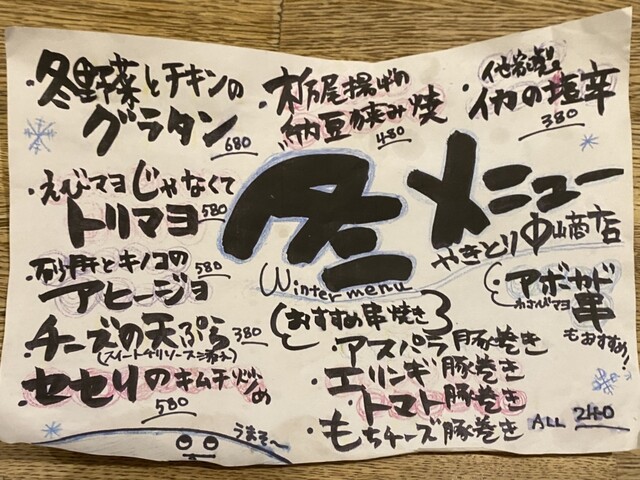 ・冬野菜とチキンの
グラタン 680
・栃尾揚げの
納豆挟み焼 480
・イカの塩辛
380
・えびマヨじゃなくて
トリマヨ 580
・砂肝とキノコの
アヒージョ 580
・チーズの天ぷら 380
・セセリのキムチ炒め
580
うまそ〜
冬メニュー
Winter menu
やきとり 中山商店
(おすすめ串焼き)
・アスパラ豚巻き
・エリンギ豚巻き
・トマト豚巻き
・もちチーズ豚巻き
ALL 240
・アボカド串
わさびマヨ
もおすすめ!!